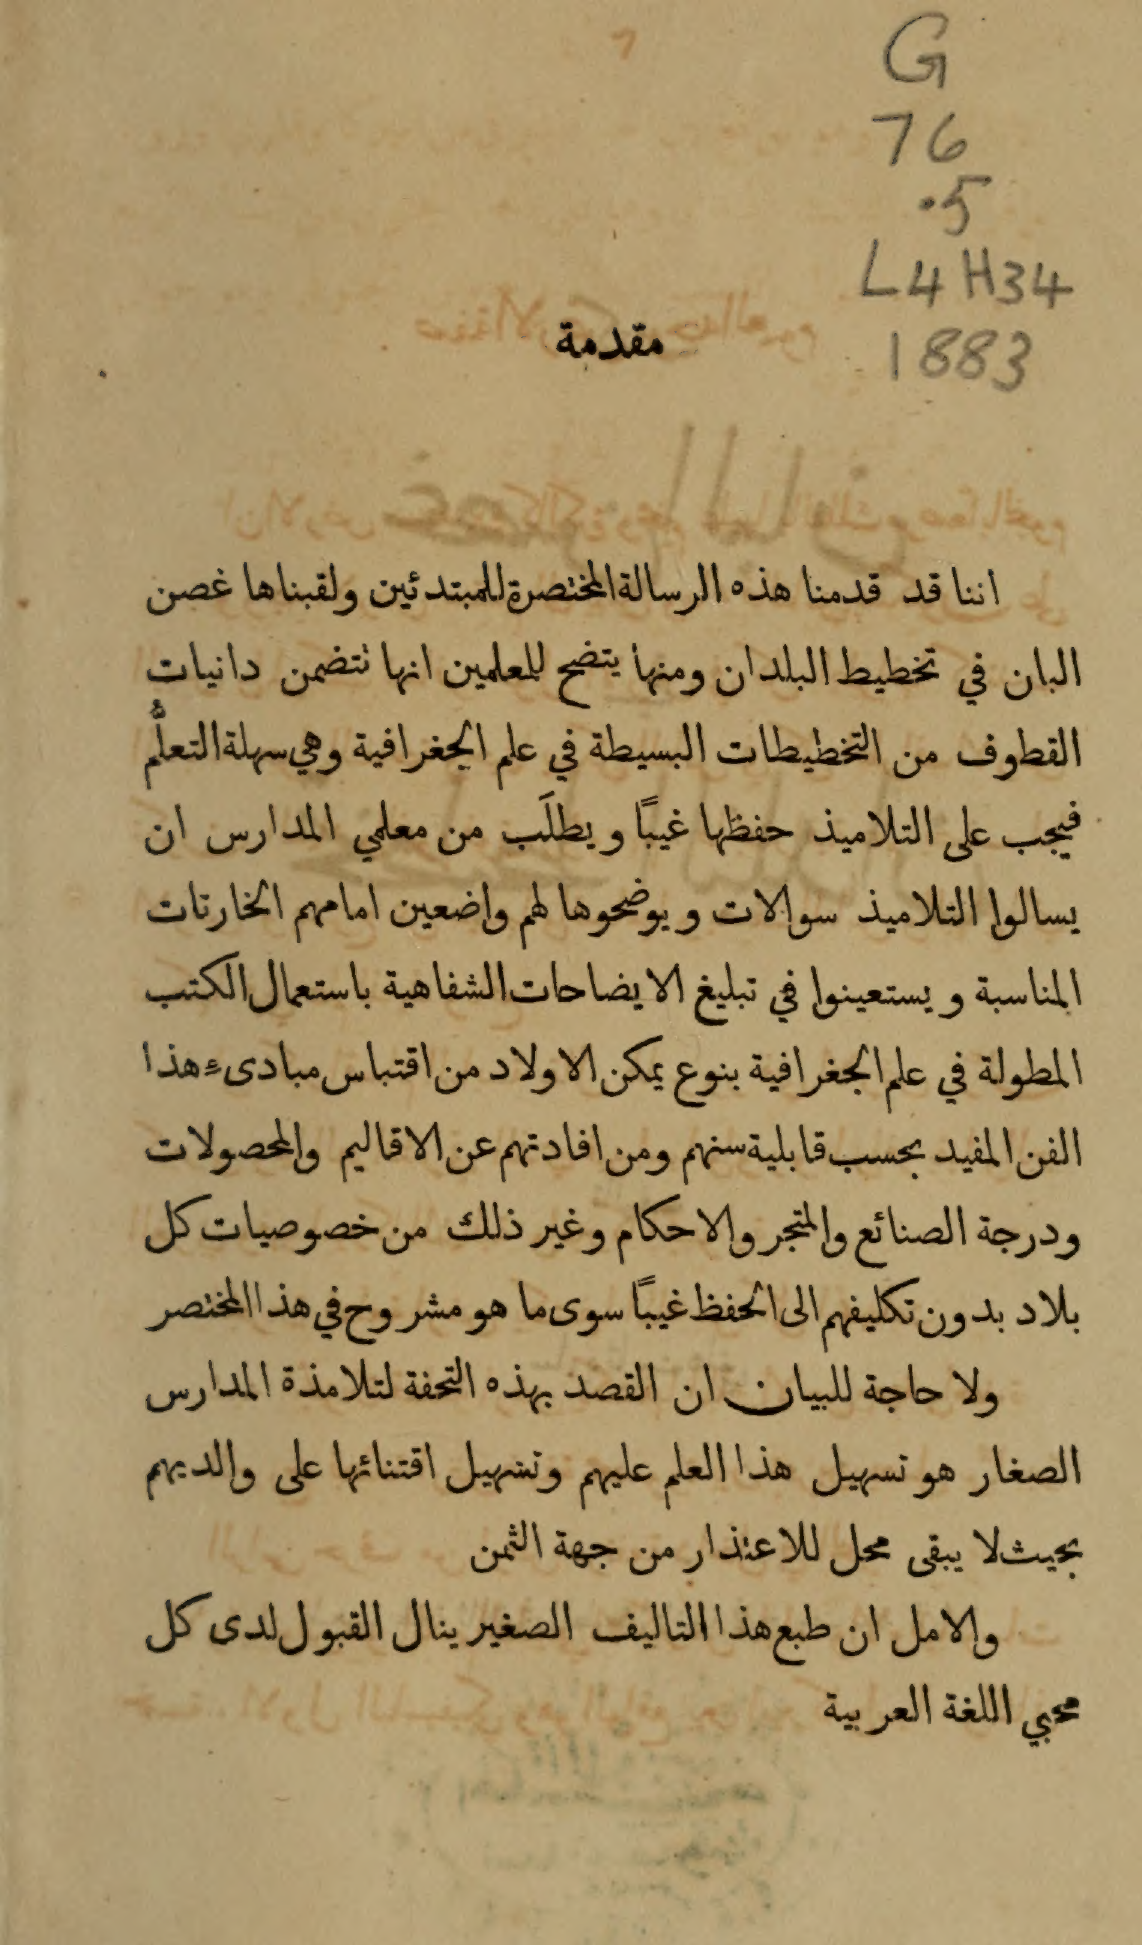 G
76
.5
L4 H34
1883
مقدمة
اننا قد قدمنا هذه الرسالة المختصرة للمبتدئين ولقبناها غصن
البان في تخطيط البلدان ومنها يتضح للمعلمين انها تتضمن دانيات
القطوف من التخطيطات البسيطة في علم الجغرافية وهي سهلة التعلُّم
فيجب على التلاميذ حفظها غيبًا ويطلَب من معلمي المدارس ان
يسالوا التلاميذ سوالات ويوضحوها لهم واضعين امامهم الخارتات
المناسبة ويستعينوا في تبليغ الايضاحات الشفاهية باستعمال الكتب
المطولة في علم الجغرافية بنوع يمكن الاولاد من اقتباس مبادىء هذا
الفن المفيد بحسب قابلية سنهم ومن افادتهم عن الاقاليم والمحصولات
ودرجة الصنائع والمتجر والاحكام وغير ذلك من خصوصيات كل
بلاد بدون تكليفهم الى الحفظ غيبًا سوى ما هو مشروح في هذا المختصر
ولا حاجة للبيان ان القصد بهذه التحفة لتلامذة المدارس
الصغار هو تسهيل هذا العلم عليهم وتسهيل اقتنائها على والديهم
بحيث لا يبقى محل للاعتذار من جهة الثمن
والامل ان طبع هذا التاليف الصغير ينال القبول لدى كل
محبي اللغة العربية